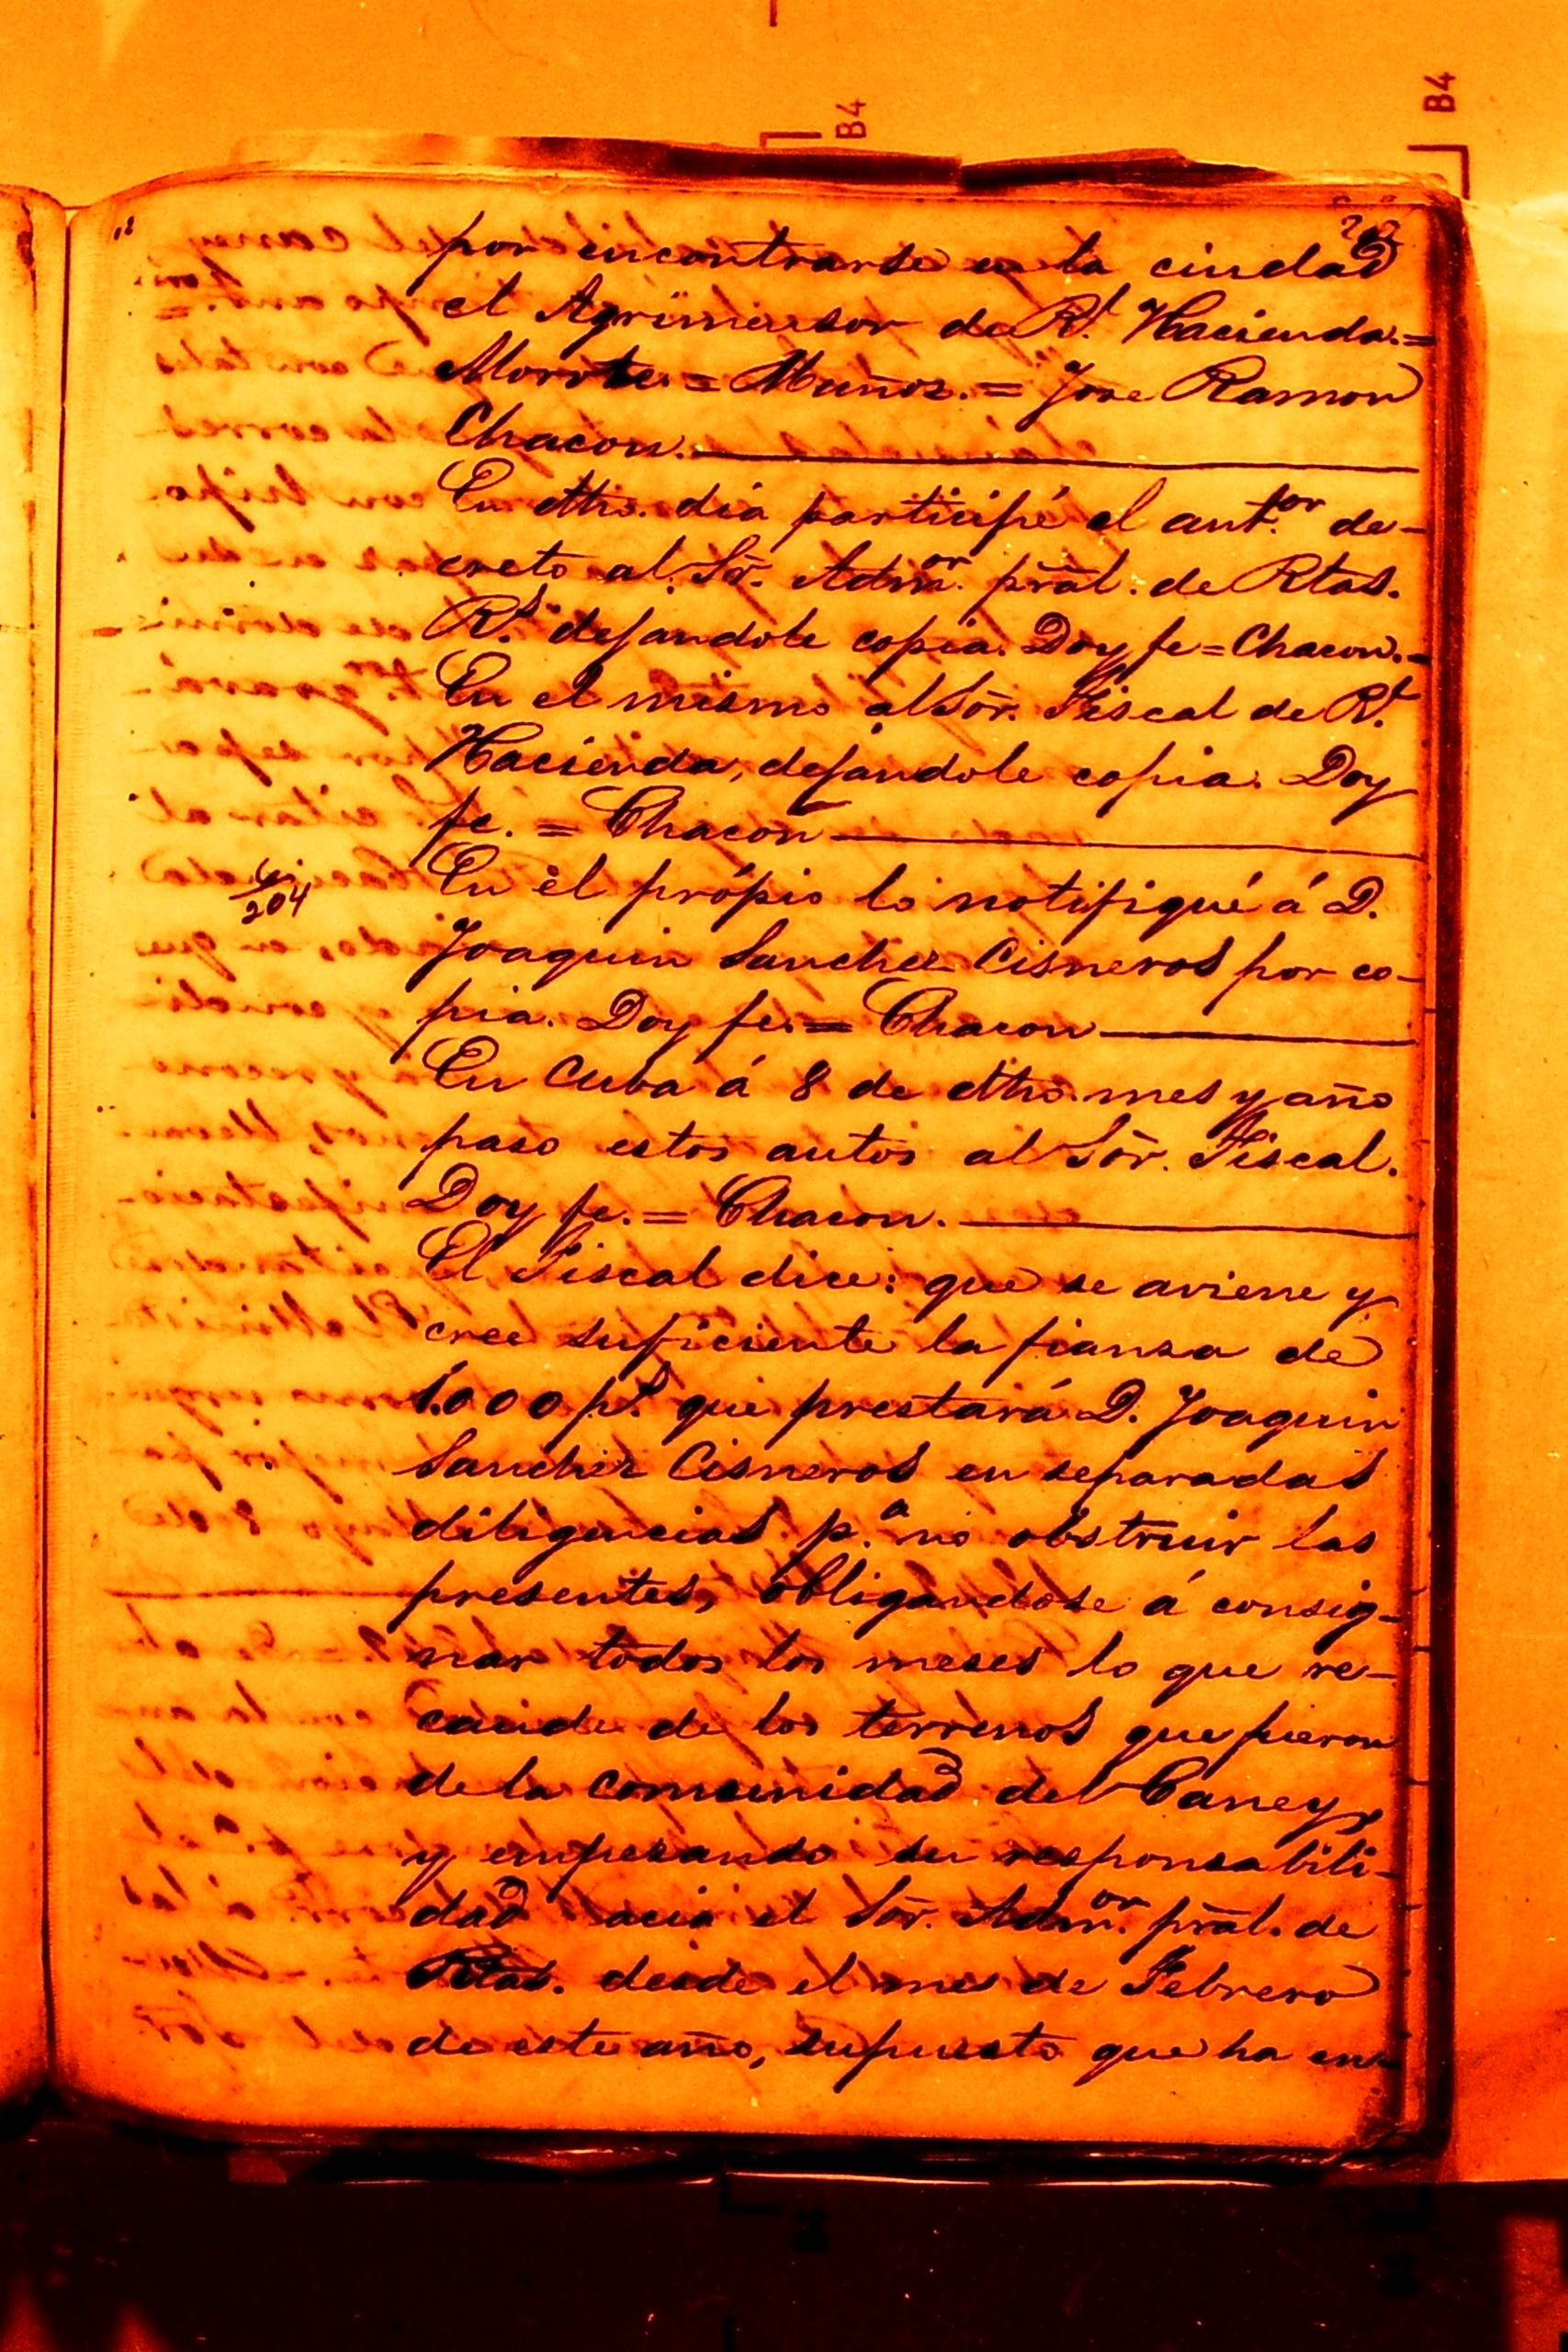 B4
B4
por encontrarse en la ciudad
el Agrimensor de Rl. Hacienda.=
Morote = Muñoz. = Jose Ramon
Chacon.
En dtho. dia participé el antor. de-
creto al Sör. Admor. prãl. de Rtas.
Rs. dejandole copia. Doy fe = Chacon.-
En el mismo al Sör. Fiscal de Rl.
Hacienda, dejandole copia. Doy
fe. = Chacon
En él própio lo notifiqué á D.
204
Joaquin Sanchez Cisneros por co-
pia. Doy fe. = Chacon
En Cuba á 8 de dtho. mes y año
paso estos autos al Sör. Fiscal.
Doy fe. = Chacon.
El Fiscal dice: que se aviene y
cree suficiente la fianza de
1.000 ps. que prestará D. Joaquin
Sanchez Cisneros en separadas
diligencias pa. no obstruir las
presentes, obligandose á consig-
nar todos los meses lo que re-
caude de los terrenos que fueron
de la comunidad del Caney,
y empezando su responsabili-
dad acia el Sör. Admor. prãl. de
Rtas. desde el mes de Febrero
de este año, supuesto que ha en-